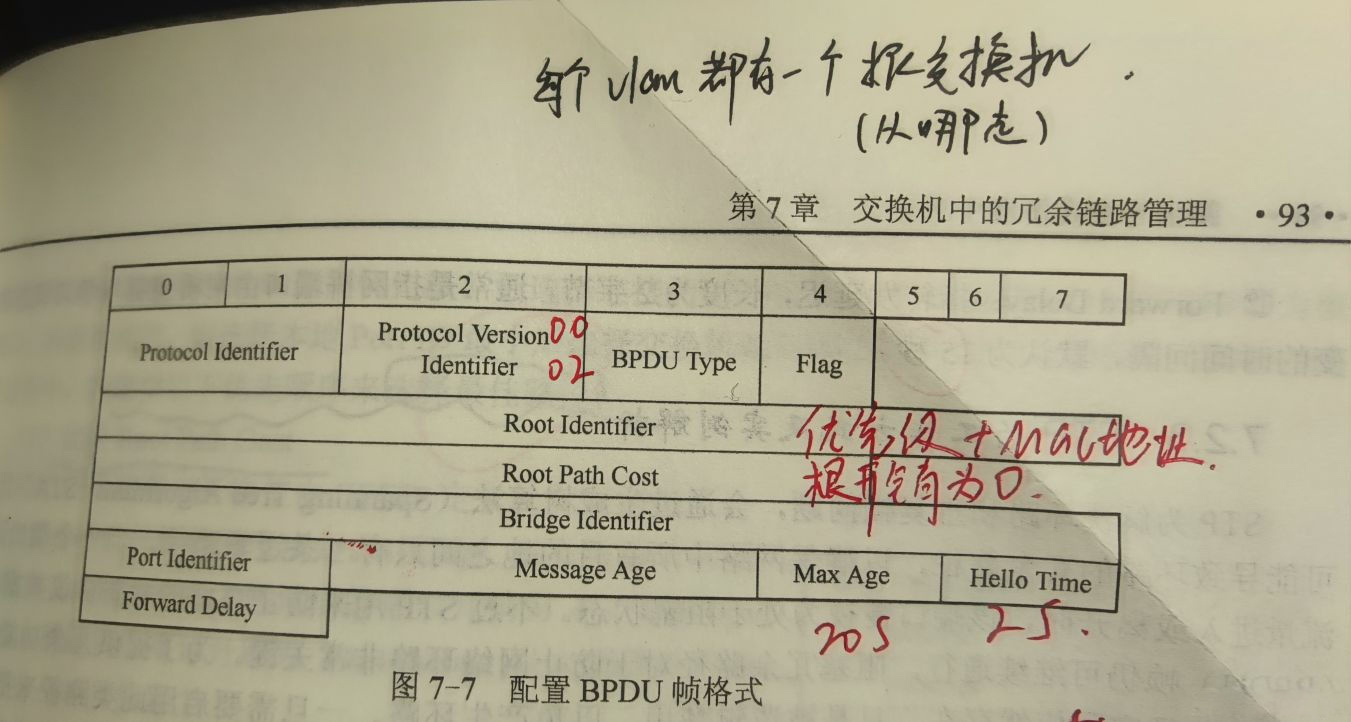 每个vlan都有一个根交换机.
(从哪走)
第7章 交换机中的冗余链路管理 ·93·
0 1 2 3 4 5 6 7
Protocol Identifier
Protocol Version 00
Identifier 02
BPDU Type
Flag
Root Identifier 优先级+MAC地址.
Root Path Cost 根开销为0.
Bridge Identifier
Port Identifier Message Age Max Age Hello Time
Forward Delay
20S 2S.
图 7-7 配置 BPDU 帧格式